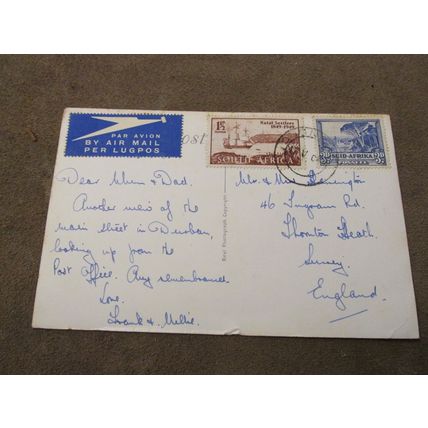 PAR AVION
BY AIR MAIL
PER LUGPOS
ost
1½
Natal Settlers
1849-1949
SOUTH AFRICA
SUID-AFRIKA
Dear Mum & Dad.
Another view of the
main street in Durban,
looking up from the
Post Office. Any remembrance
Love.
Frank & Millie.
Mr. & Mrs
46 Ingram Rd.
Thornton Heath.
Surrey.
England.